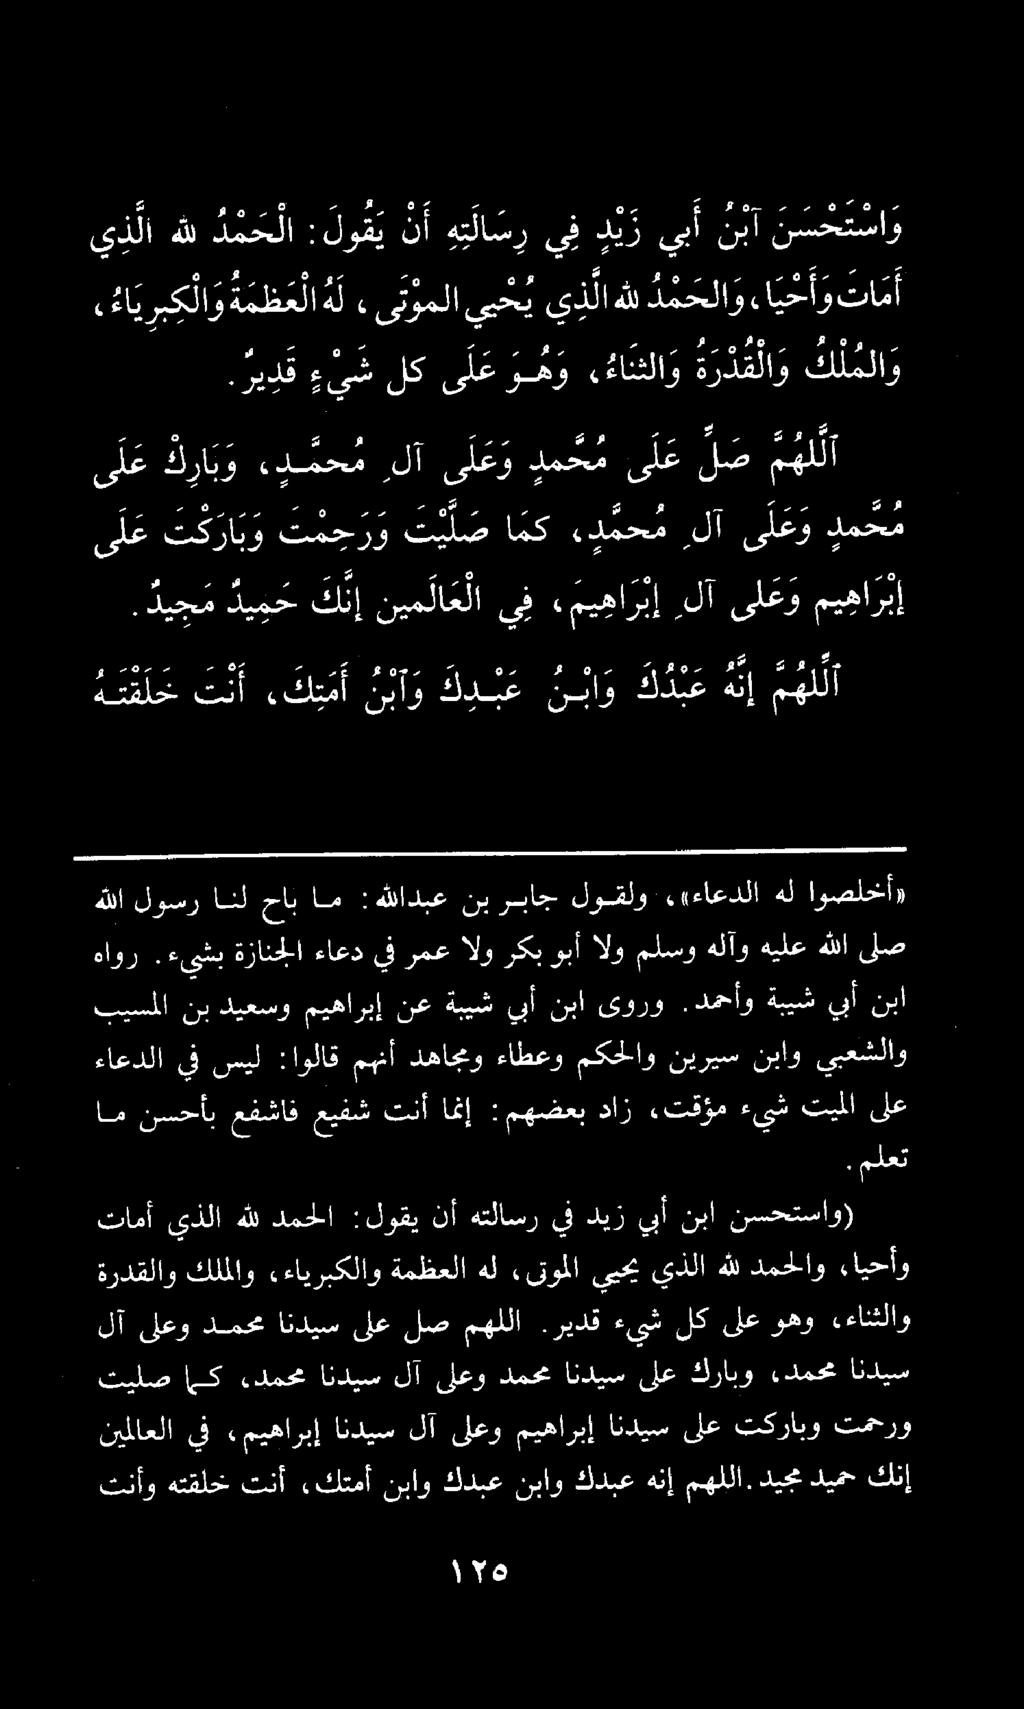 وَاسْتَحْسَنَ آبْنُ أَبي زَيْدٍ فِي رِسَالَتِهِ أَنْ يَقُولَ: الْحَمْدُ لله الَّذِي
أَمَاتَ وَأَحْيَا، وَالحَمْدُ لله الَّذِي يُحْيِي الموْتَى، لَهُ الْعَظَمَةُ وَالْكِبرِيَاءُ،
وَالمُلْكُ وَالْقُدْرَةُ وَالثنَاءُ، وَهُـوَ عَلَى كل شَيْءٍ قَدِيرٌ.
آللَّهُمَّ صَلِّ عَلَى مُحَّمدٍ وَعَلَى آلِ مُحمَّـدٍ، وَبَارِكْ عَلَى
مُحَّمدٍ وَعَلَى آلِ مُحمَّدٍ، كمَا صَلَّيْتَ وَرَحِمْتَ وَبَارَكْتَ عَلَى
إِبْرَاهِيم وَعَلى آلِ إِبْرَاهِيمَ، فِي الْعَالَمين إِنَّكَ حَمِيدٌ مَجِيدٌ.
آللَّهُمَّ إِنَّهُ عَبْدُكَ وَابْـنُ عَبْـدِكَ وَآبْنُ أَمَتِكَ، أَنْتَ خَلَقْتَـهُ
«أخلصوا له الدعاء»، ولقـول جابـر بن عبدالله: مـا باح لنـا رسول الله
صلى الله عليه وآله وسلم ولا أبو بكر ولا عمر في دعاء الجنازة بشيء. رواه
ابن أبي شيبة وأحمد. وروى ابن أبي شيبة عن إبراهيم وسعيد بن المسيب
والشعبي وابن سيرين والحكم وعطاء ومجاهد أنهم قالوا: ليس في الدعاء
على الميت شيء مؤقت، زاد بعضهم: إنما أنت شفيع فاشفع بأحسن مـا
تعلم.
(واستحسن ابن أبي زيد في رسالته أن يقول: الحمد لله الذي أمات
وأحيا، والحمد لله الذي يحيي الموتى، له العظمة والكبرياء، والملك والقدرة
والثناء، وهو على كل شيء قدير. اللهم صل على سيدنا محمـد وعلى آل
سيدنا محمد، وبارك على سيدنا محمد وعلى آل سيدنا محمد، كـما صليت
ورحمت وباركت على سيدنا إبراهيم وعلى آل سيدنا إبراهيم، في العالمين
إنك حميد مجيد. اللهم إنه عبدك وابن عبدك وابن أمتك، أنت خلقته وأنت
١٢٥